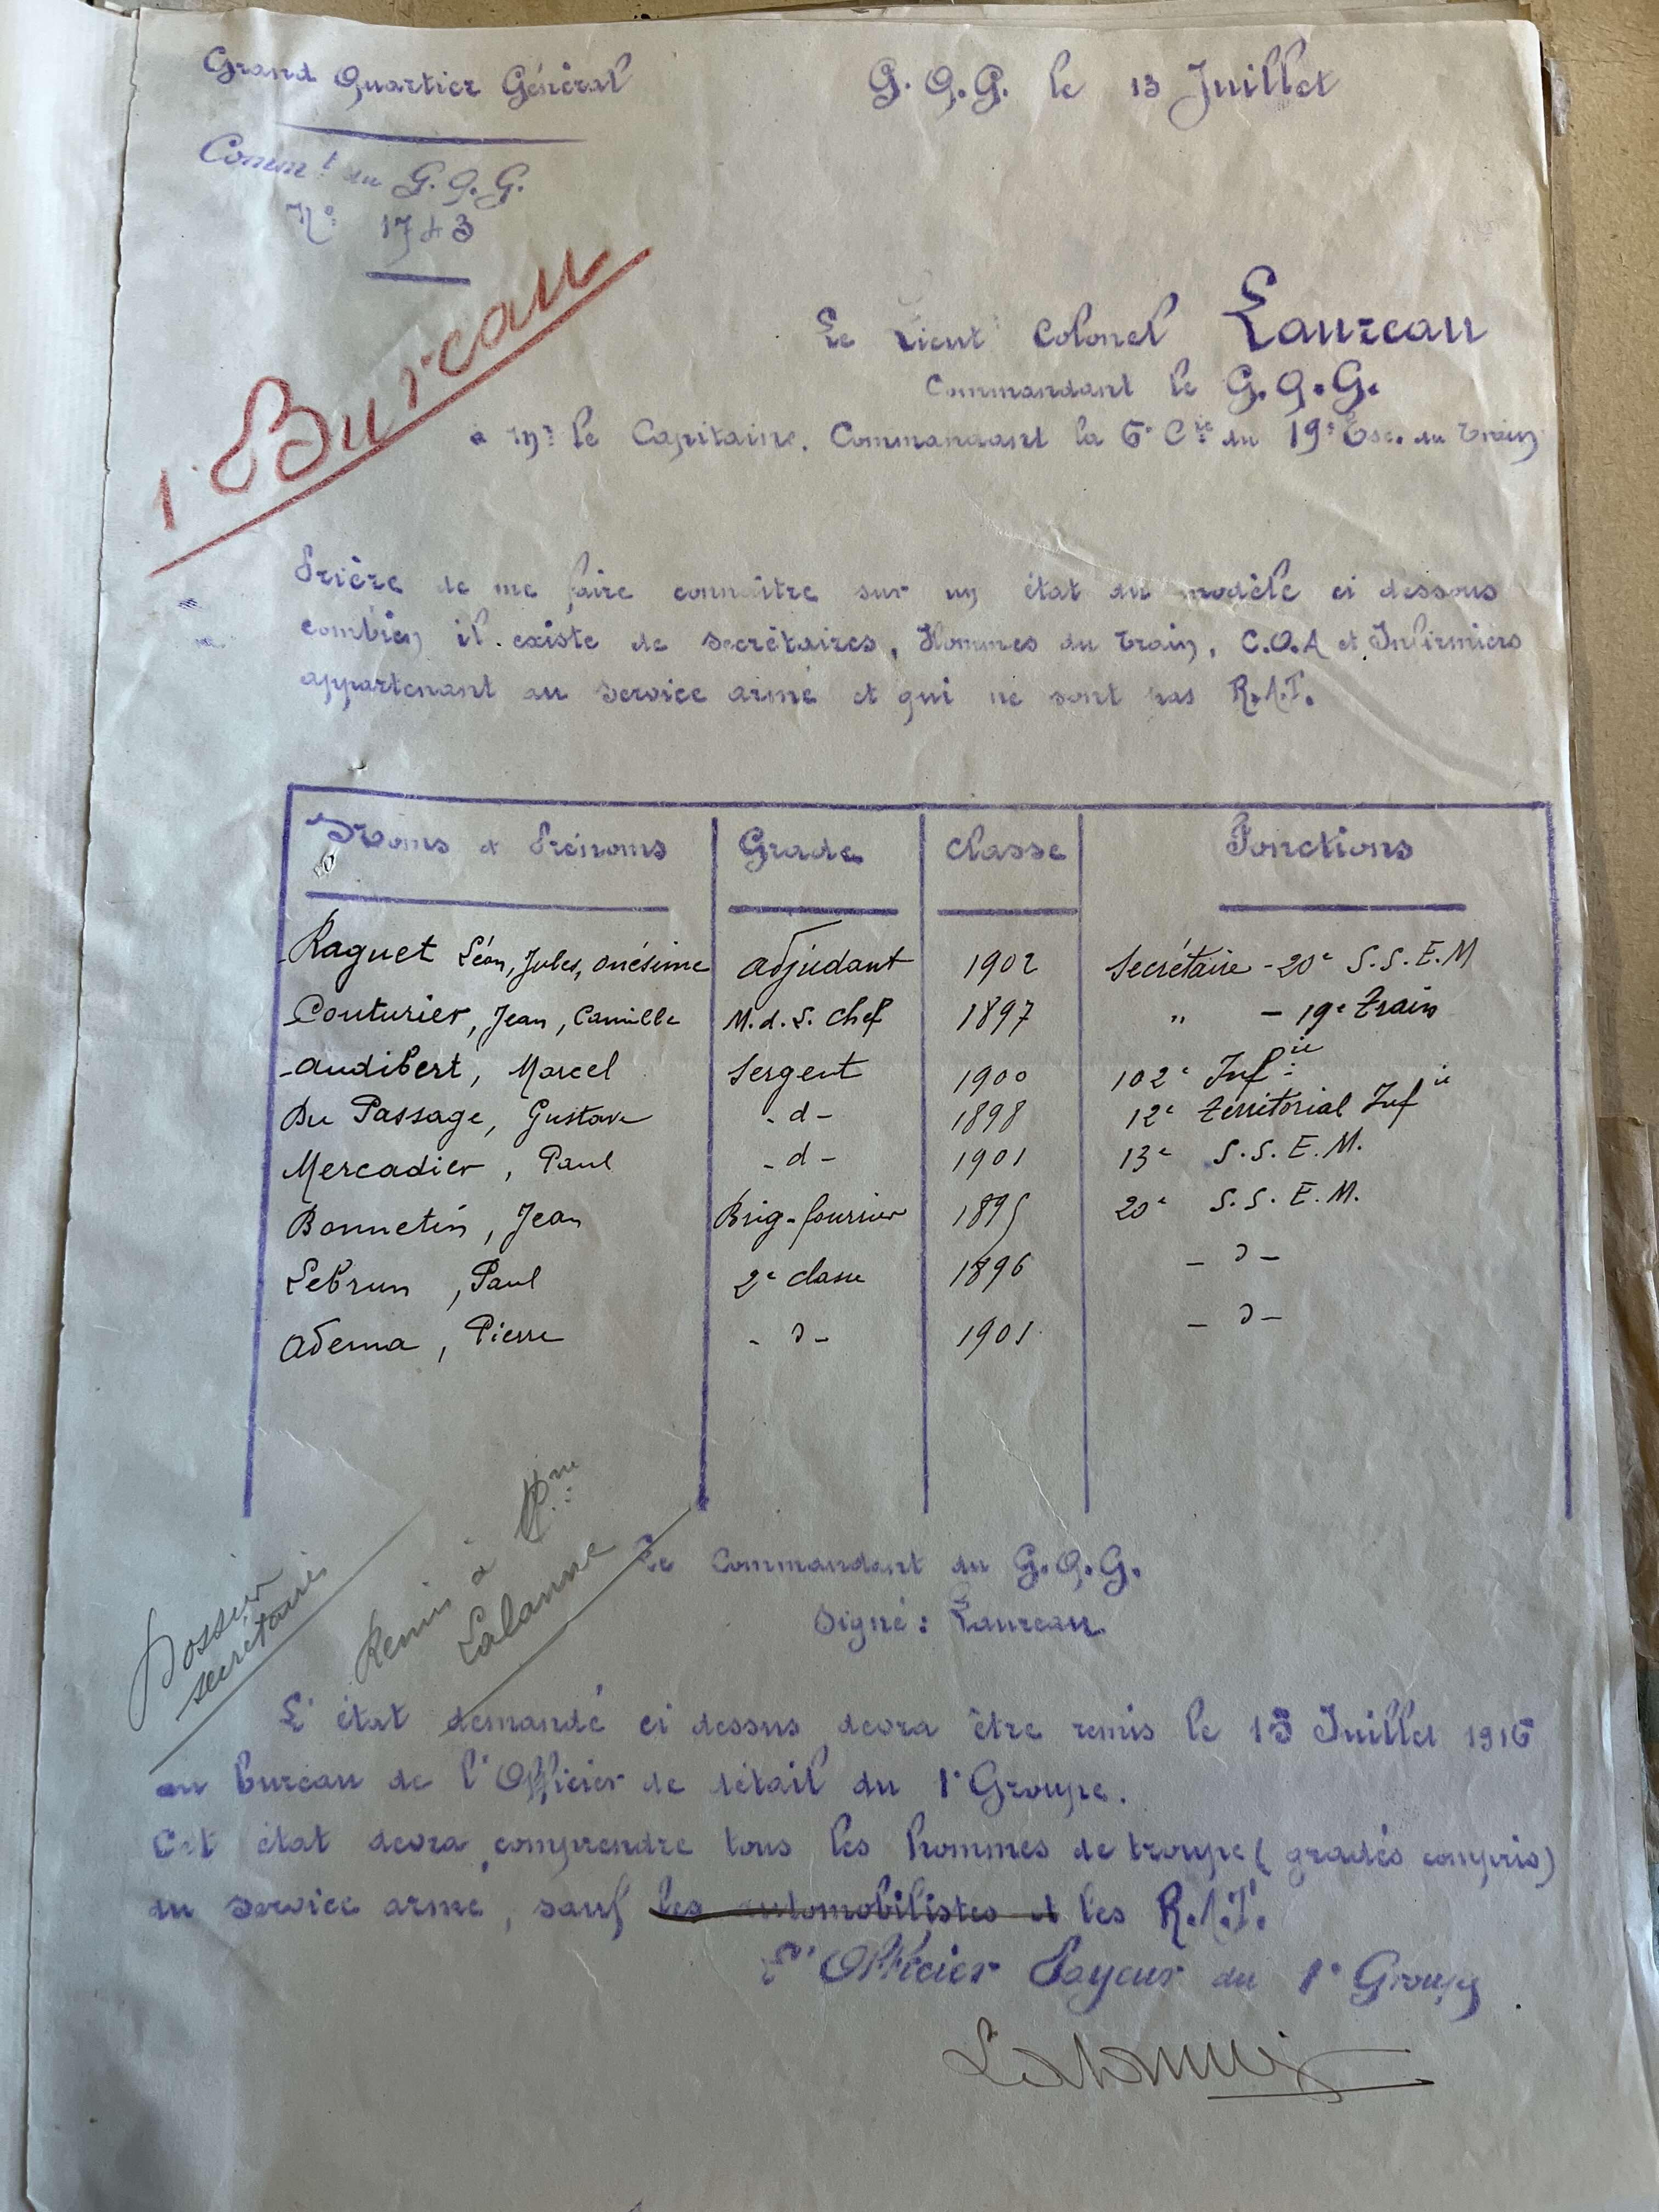 Grand Quartier Général
G.Q.G. le 13 Juillet
Commt du G.Q.G.
No 1743
1r Bureau
Le Lieut Colonel Laureau
Commandant le G.Q.G.
à Mr le Capitaine, Commandant la 6e Cie du 19e Esc. du Train
Prière de me faire connaître sur un état du modèle ci dessous
combien il existe de secrétaires, Hommes du train, C.O.A et Infirmiers
appartenant au service armé et qui ne sont pas R.A.T.
Noms et Prénoms Grade Classe Fonctions
Raguet Léon, Jules, Onésime Adjudant 1902 Secrétaire - 20e S.S.E.M
Couturier, Jean, Camille M.d.L. Chef 1897 " - 19e train
Audibert, Marcel Sergent 1900 102e Infie
Du Passage, Gustave - d - 1898 12e territorial Infie
Mercadier, Paul - d - 1901 13e S.S.E.M.
Bonnetin, Jean Brig-fourrier 1895 20e S.S.E.M.
Lebrun, Paul 2e classe 1896 - d -
Aderna, Pierre - d - 1901 - d -
Dossier
secrétaires
Remis à
Lalanne
Le Commandant du G.Q.G.
Signé: Laureau
L'état demandé ci dessus devra être remis le 15 Juillet 1916
au bureau de l'Officier de détail du 1r Groupe.
Cet état devra comprendre tous les hommes de troupe (gradés compris)
du service armé, sauf les automobilistes et les R.A.T.
L'Officier Payeur du 1r Groupe
Lalanne